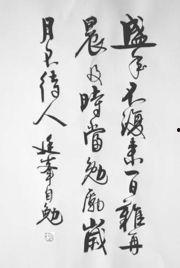 盛年不復来一日難再
晨及時當勉勵歲
月不待人 延峯自勉